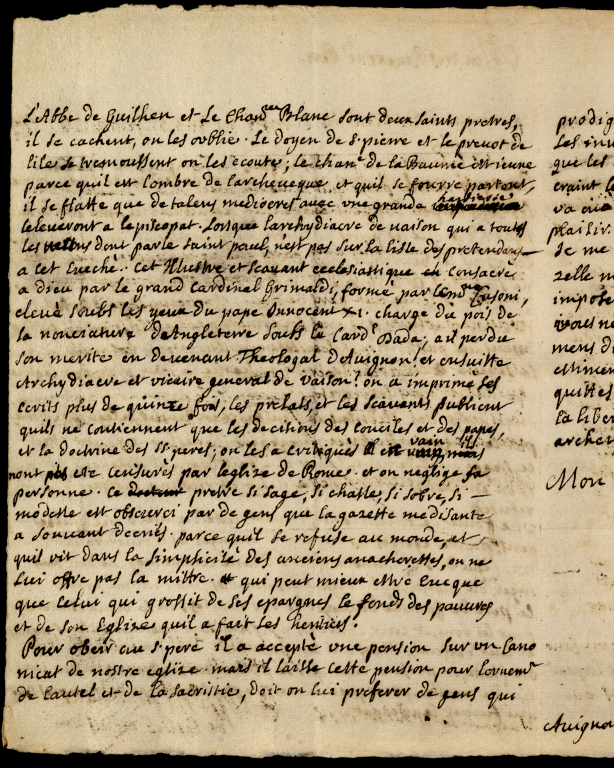 L'Abbé de Guilhen et Le Chanoe Blanc sont deux saints pretres,
il se cachent, on les oublie. Le doyen de s. pierre et le prevot de
lile se tremoussent on les ecoute; le chane. de la Baunie est ieune
parce quil est l'ombre de larcheveque, et quil se fourre partout,
il se flatte que de talens mediocres avec une grande hardiesse
leleveront a lepiscopat. Lorsque larchydiacre de vaison qui a touts
les dont parle saint paul, nest pas sur la liste des pretendans
a cet Eveché. Cet Illustre et scavant ecclesiastique consacré
a dieu par le grand Cardinal Grimaldi, formé par
elevé soubs les yeux du pape Innocent XI. chargé du pois de
la nonciature d'Angleterre soubs le Card. Dada, a il perdu
son merite en devenant Theologal d'Avignon! et ensuitte
Archydiacre et vicaire general de vaison! on a imprimé ses
ecrits plus de quinze fois, les prelats, et les scavants publient
quils ne contiennent que les decisions des conciles et des papes,
et la doctrine des ss. peres; on les a critiqués en vain, ils
nont pas eté censurés par leglize de Rome. et on neglige sa
personne. Ce pretre si sage, si chaste, si sobre, si
modeste est obscurci par de gens que la gazette medisante
a souvant decrits. parce quil se refuse au monde, et
quil vit dans la simplicité des anciens anachorettes, on ne
lui offre pas la mittre. qui peut mieux estre Eveque
que celui qui grossit de ses epargnes le fonds des pauvres
et de son Eglize quil a fait les heritiers.
Pour obeir au st pere il a accepté une pension sur un Cano
nicat de nostre eglize. mais il laisse cette pension pour lornemt
de lautel et de la sacristie, doit on lui preferer de gens qui
prodig
Les
que les
craint l
va
plaisir.
Je me
zelle n
impose
vous ne
mens d
quittes
la liber
archev
Mon
Avigno